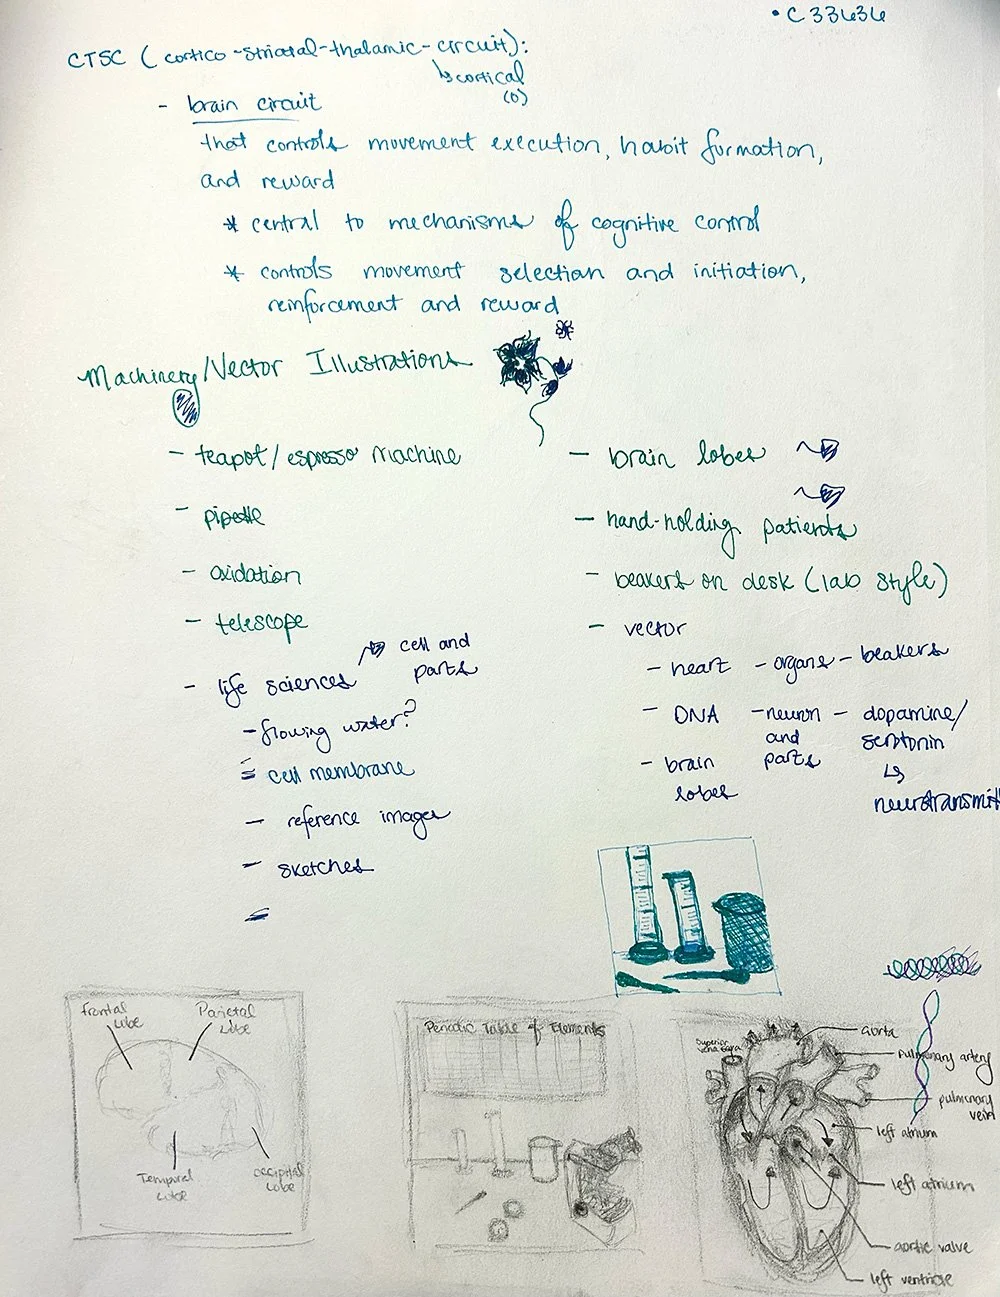 • C33636
CTSC (cortico-striatal-thalamic-circuit):
↳ cortical
(o)
- brain circuit
that controls movement execution, habit formation,
and reward
* central to mechanisms of cognitive control
* controls movement selection and initiation,
reinforcement and reward
Machinery/Vector Illustrations
- teapot/espresso machine
- pipette
- oxidation
- telescope
- life sciences → cell and
parts
- flowing water?
= cell membrane
- reference images
- sketches
- brain lobes
- hand-holding patients
- beakers on desk (lab style)
- vector
- heart - organs - beakers
- DNA - neuron - dopamine/
and serotonin
parts
- brain
lobes
↳
neurotransmitt
Frontal
Lobe
Parietal
Lobe
Temporal
Lobe
Occipital
Lobe
Periodic Table of Elements
Superior
vena cava
aorta
pulmonary artery
pulmonary
vein
left atrium
left atrium
aortic valve
left ventricle